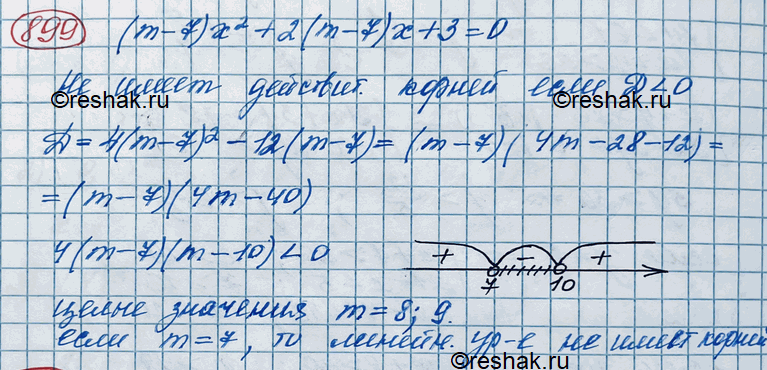 899 (m-7)x²+2(m-7)x+3=0
Не имеет действит. корней если D<0
©reshak.ru ©reshak.ru
D=4(m-7)²-12(m-7)=(m-7)(4m-28-12)=
=(m-7)(4m-40)
4(m-7)(m-10)<0
+ - +
7 10
целые значения m=8; 9.
если m=7, то линейн. ур-е не имеет корней
©reshak.ru ©reshak.ru